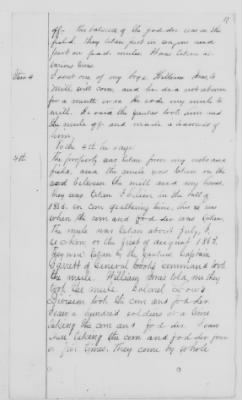 off. The balance of the fodder was in the
field. They taken part in wagons and
part on foot mules. Have taken at
various times.
Item 4
I sent one of my boys William Ance, to
mill with corn and he did not return
for a month or so. He rode my mule to
mill. He said the Yankee took him and
the mule off and made a teamster of
him.
To the 4th he says:
4th.
The property was taken from my and
field, and the mule was taken on the
road between the mill and my house
they was taken I believe in the fall of
1863. in corn gathering time, this is
when the corn and fodder was taken
The mule was taken about July,
or the first of August 1863.
taken by the Yankee Captain
Garrett of General Crooks command took
the mule. William Ance told me they
took the mule. Colonel Lows
Division took the corn and fodder
I saw a hundred soldiers at a time
taking the corn and fodder. I saw
taking the corn and fodder four
or five times. They come by whole